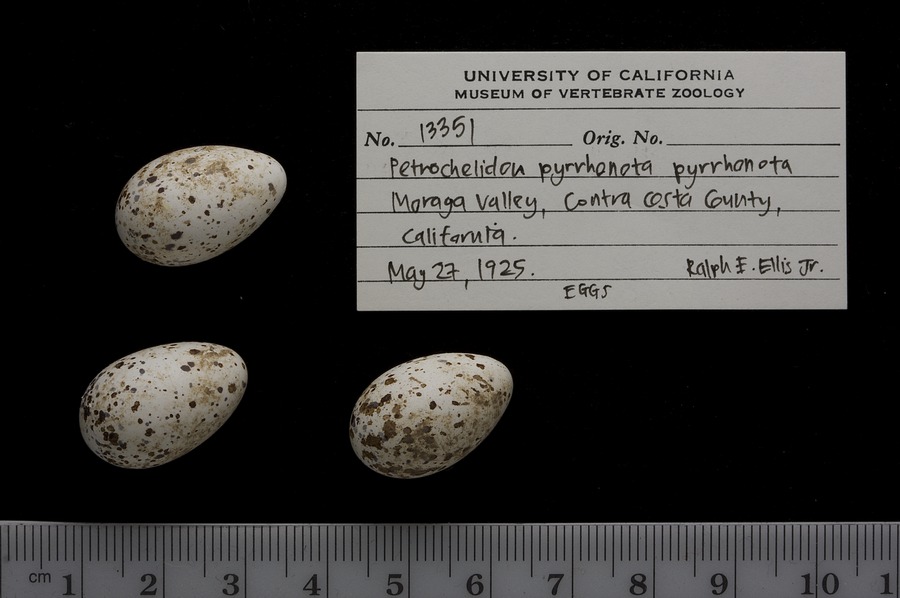 UNIVERSITY OF CALIFORNIA
MUSEUM OF VERTEBRATE ZOOLOGY
No. 13351 Orig. No.
Petrochelidon pyrrhonota pyrrhonota
Moraga Valley, Contra Costa County,
California.
May 27, 1925. Ralph E. Ellis Jr.
EGGS
cm 1 2 3 4 5 6 7 8 9 10 1